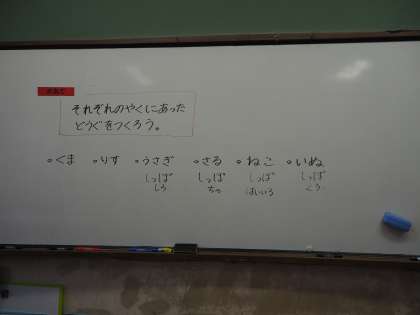 めあて
それぞれのやくにあった
どうぐをつくろう。
。くま 。りす 。うさぎ 。さる 。ねこ 。いぬ
しっぽ しっぽ しっぽ しっぽ
しろ ちゃ はいいろ くろ